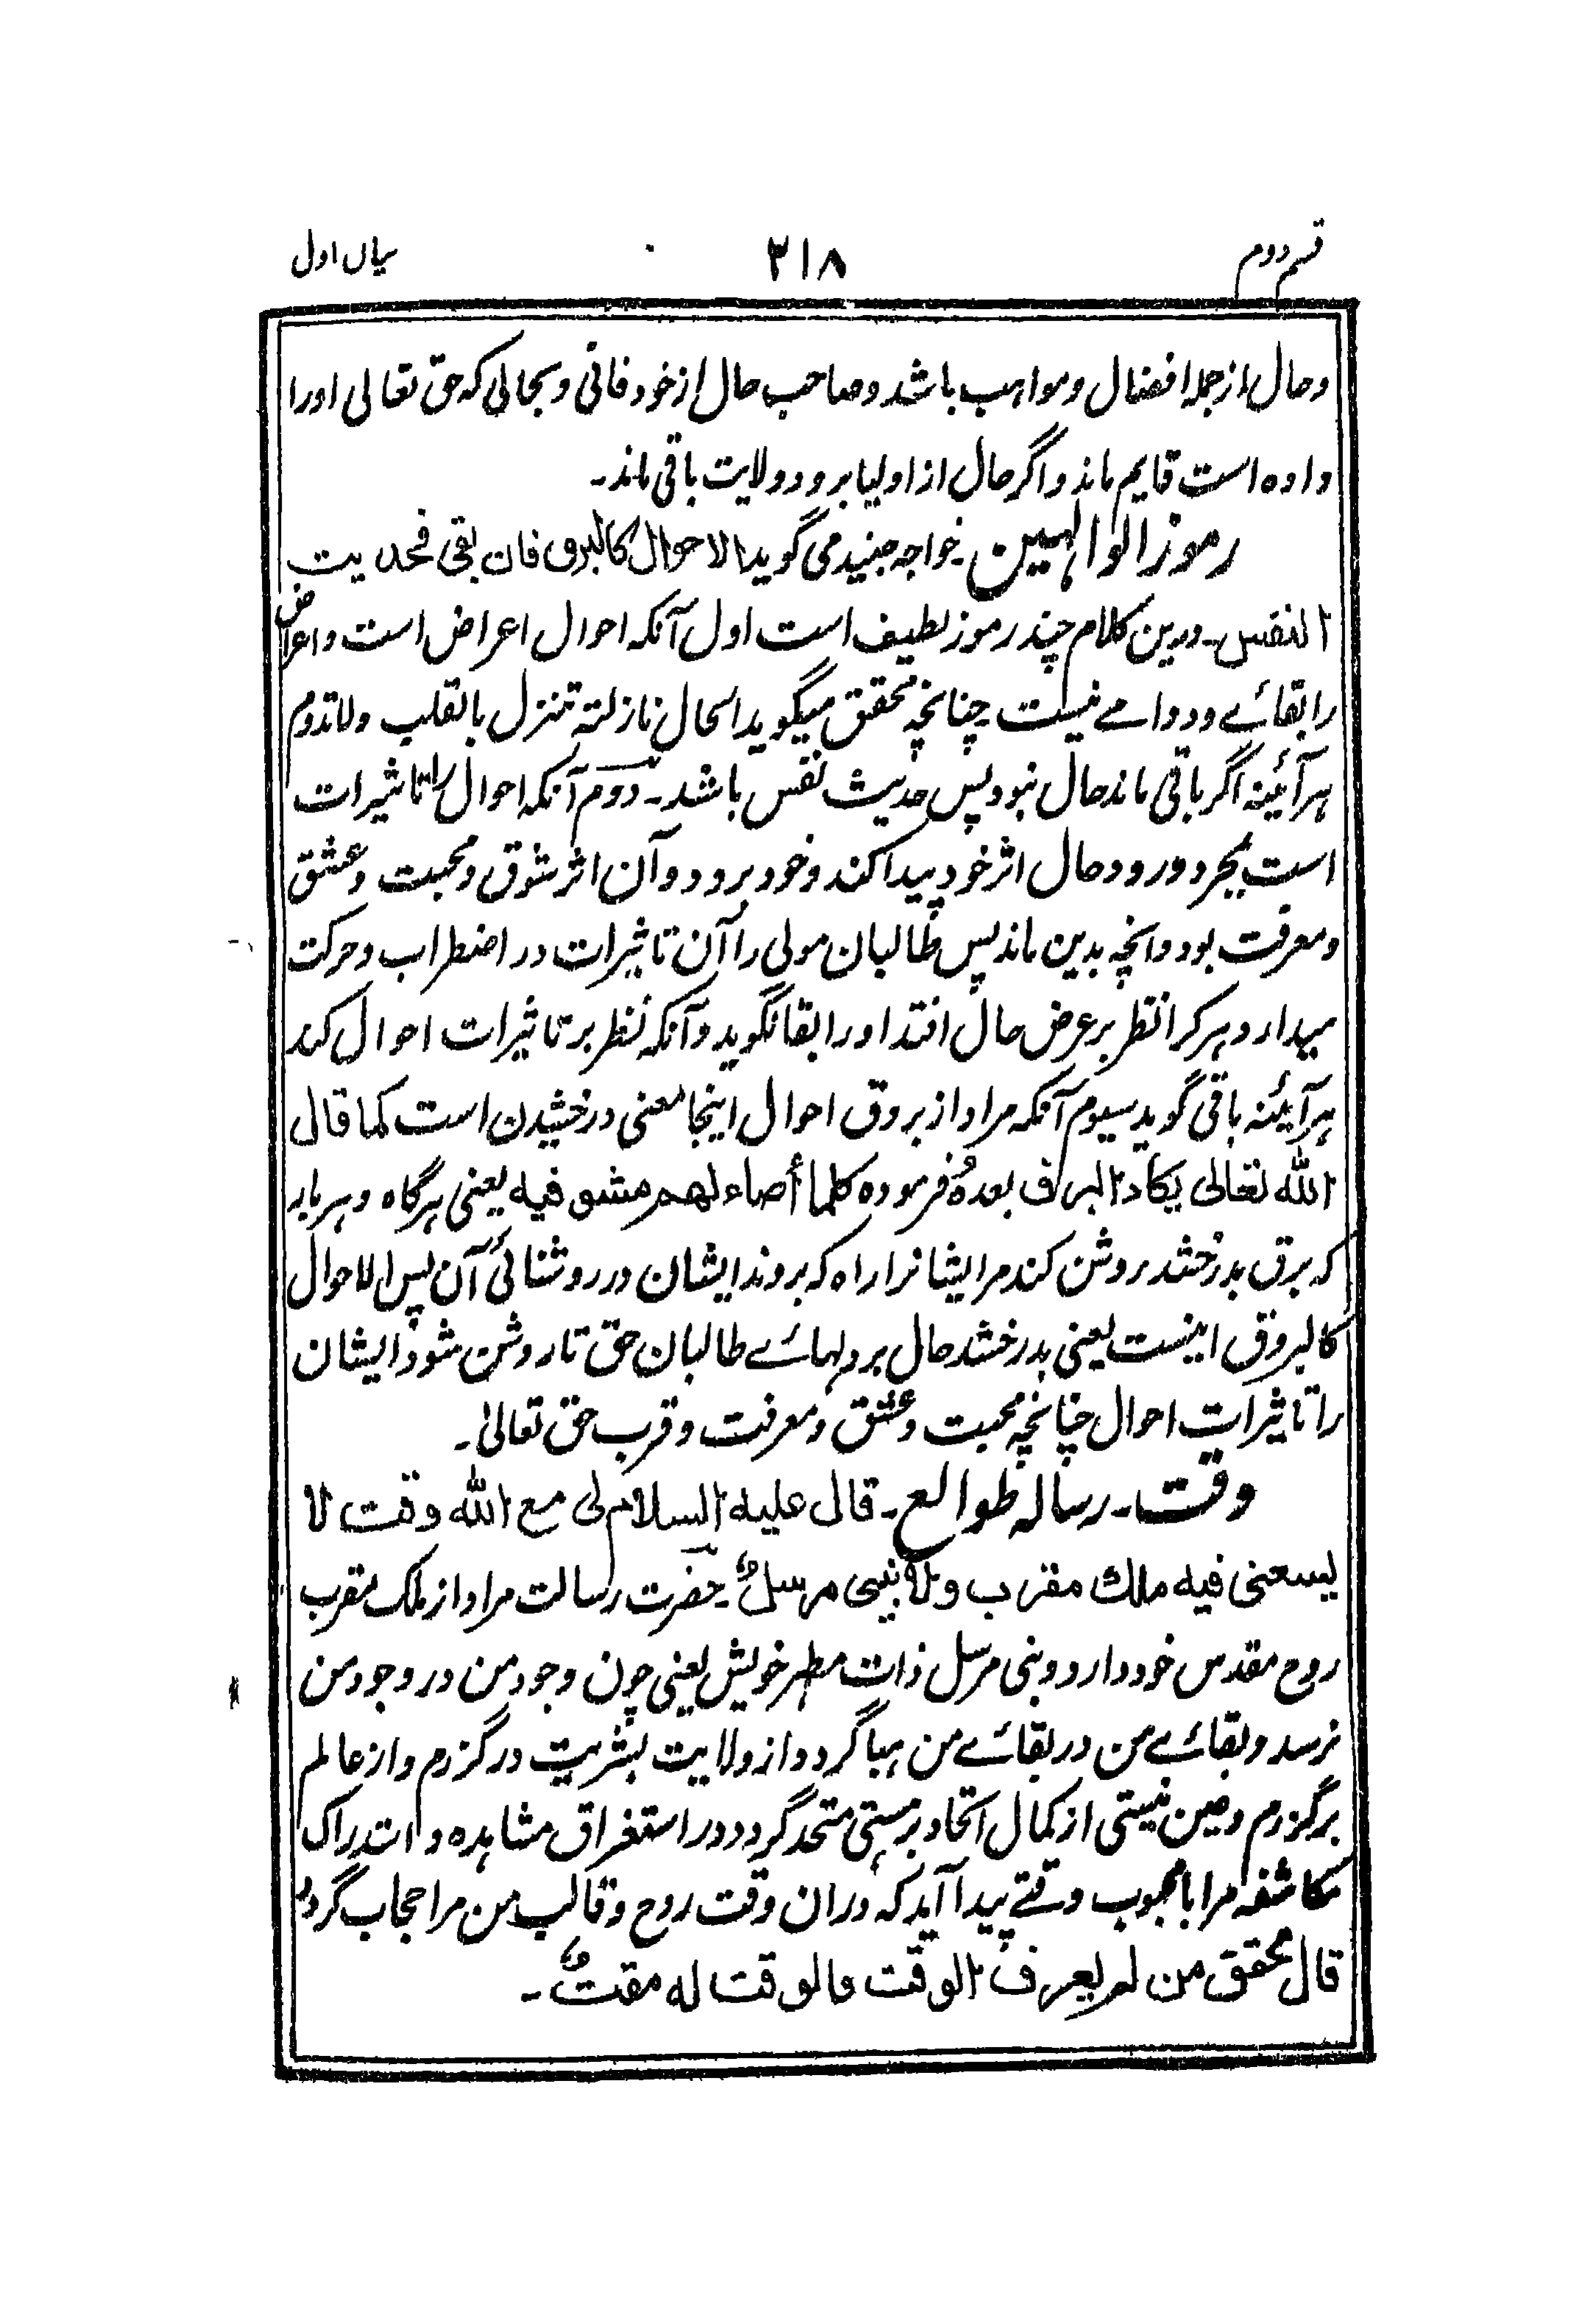 قسم دوم ۳۱۸ بیان اول
وحال از جملہ افضال ومواہب باشد وصاحب حال از خود فانی وبحالی کہ حق تعالی اورا
دادہ است قایم ماند واگر حال از اولیا برود ولایت باقی ماند۔
رموز الوالہین۔ خواجہ جنید می گوید الاحوال کالبروق فان بقی فحدیث
النفس۔ درین کلام چند رموز لطیف است اول آنکہ احوال اعراض است واعراض
را بقائے ودوامے نیست چنانچہ محقق میگوید الحال نازلتہ تنزل بالقلب ولا تدوم
ہر آئینہ اگر باقی ماند حال نبود پس حدیث نفس باشد۔ دوم آنکہ احوال را تاثیرات
است بمجرد ورود حال اثر خود پیدا کند وخود برود وآن اثر شوق ومحبت وعشق
ومعرفت بود وانچہ بدین ماند پس طالبان مولی را آن تاثیرات در اضطراب وحرکت
میدارد وہر کرا نظر بر عرض حال افتد اورا بقا نگوید وآنکہ نظر بر تاثیرات احوال کند
ہر آیئنہ باقی گوید سیوم آنکہ مراد از بروق احوال اینجا معنی درخشیدن است کما قال
اللہ تعالی یکاد البرق بعدہٗ فرمودہ کلما أضاء لھم مشو فیہ یعنی ہرگاہ وہربار
کہ برق بدرخشد روشن کند مرایشانرا راہ کہ بروند ایشان در روشنائی آن پس الاحوال
کالبروق اینست یعنی بدرخشد حال بر دلہائے طالبان حق تا روشن شود ایشان
را تاثیرات احوال چنانچہ محبت وعشق ومعرفت وقرب حق تعالیٰ۔
وقت۔ رسالہ طوالع۔ قال علیہ السلام لی مع اللہ وقت لا
یسعنی فیہ ملک مقرب ولا نبی مرسلٌ۔ حضرت رسالت مراد از ملک مقرب
روح مقدس خود دارد ونبی مرسل ذات مطہر خویش یعنی چون وجود من در وجود من
نرسد وبقائے من در بقائے من ہبا گردد از ولایت بشریت در گزرم واز عالم
برگزرم وعین نیستی از کمال اتحاد بر ہستی متحد گردد در استغراق مشاہدہ و استدراک
مکاشفہ مرا با محبوب وقتے پیدا آید کہ دران وقت روح وقالب من مرا حجاب گردد
قال محقق من لم یعرف الوقت فالوقت لہ مقتٌ۔